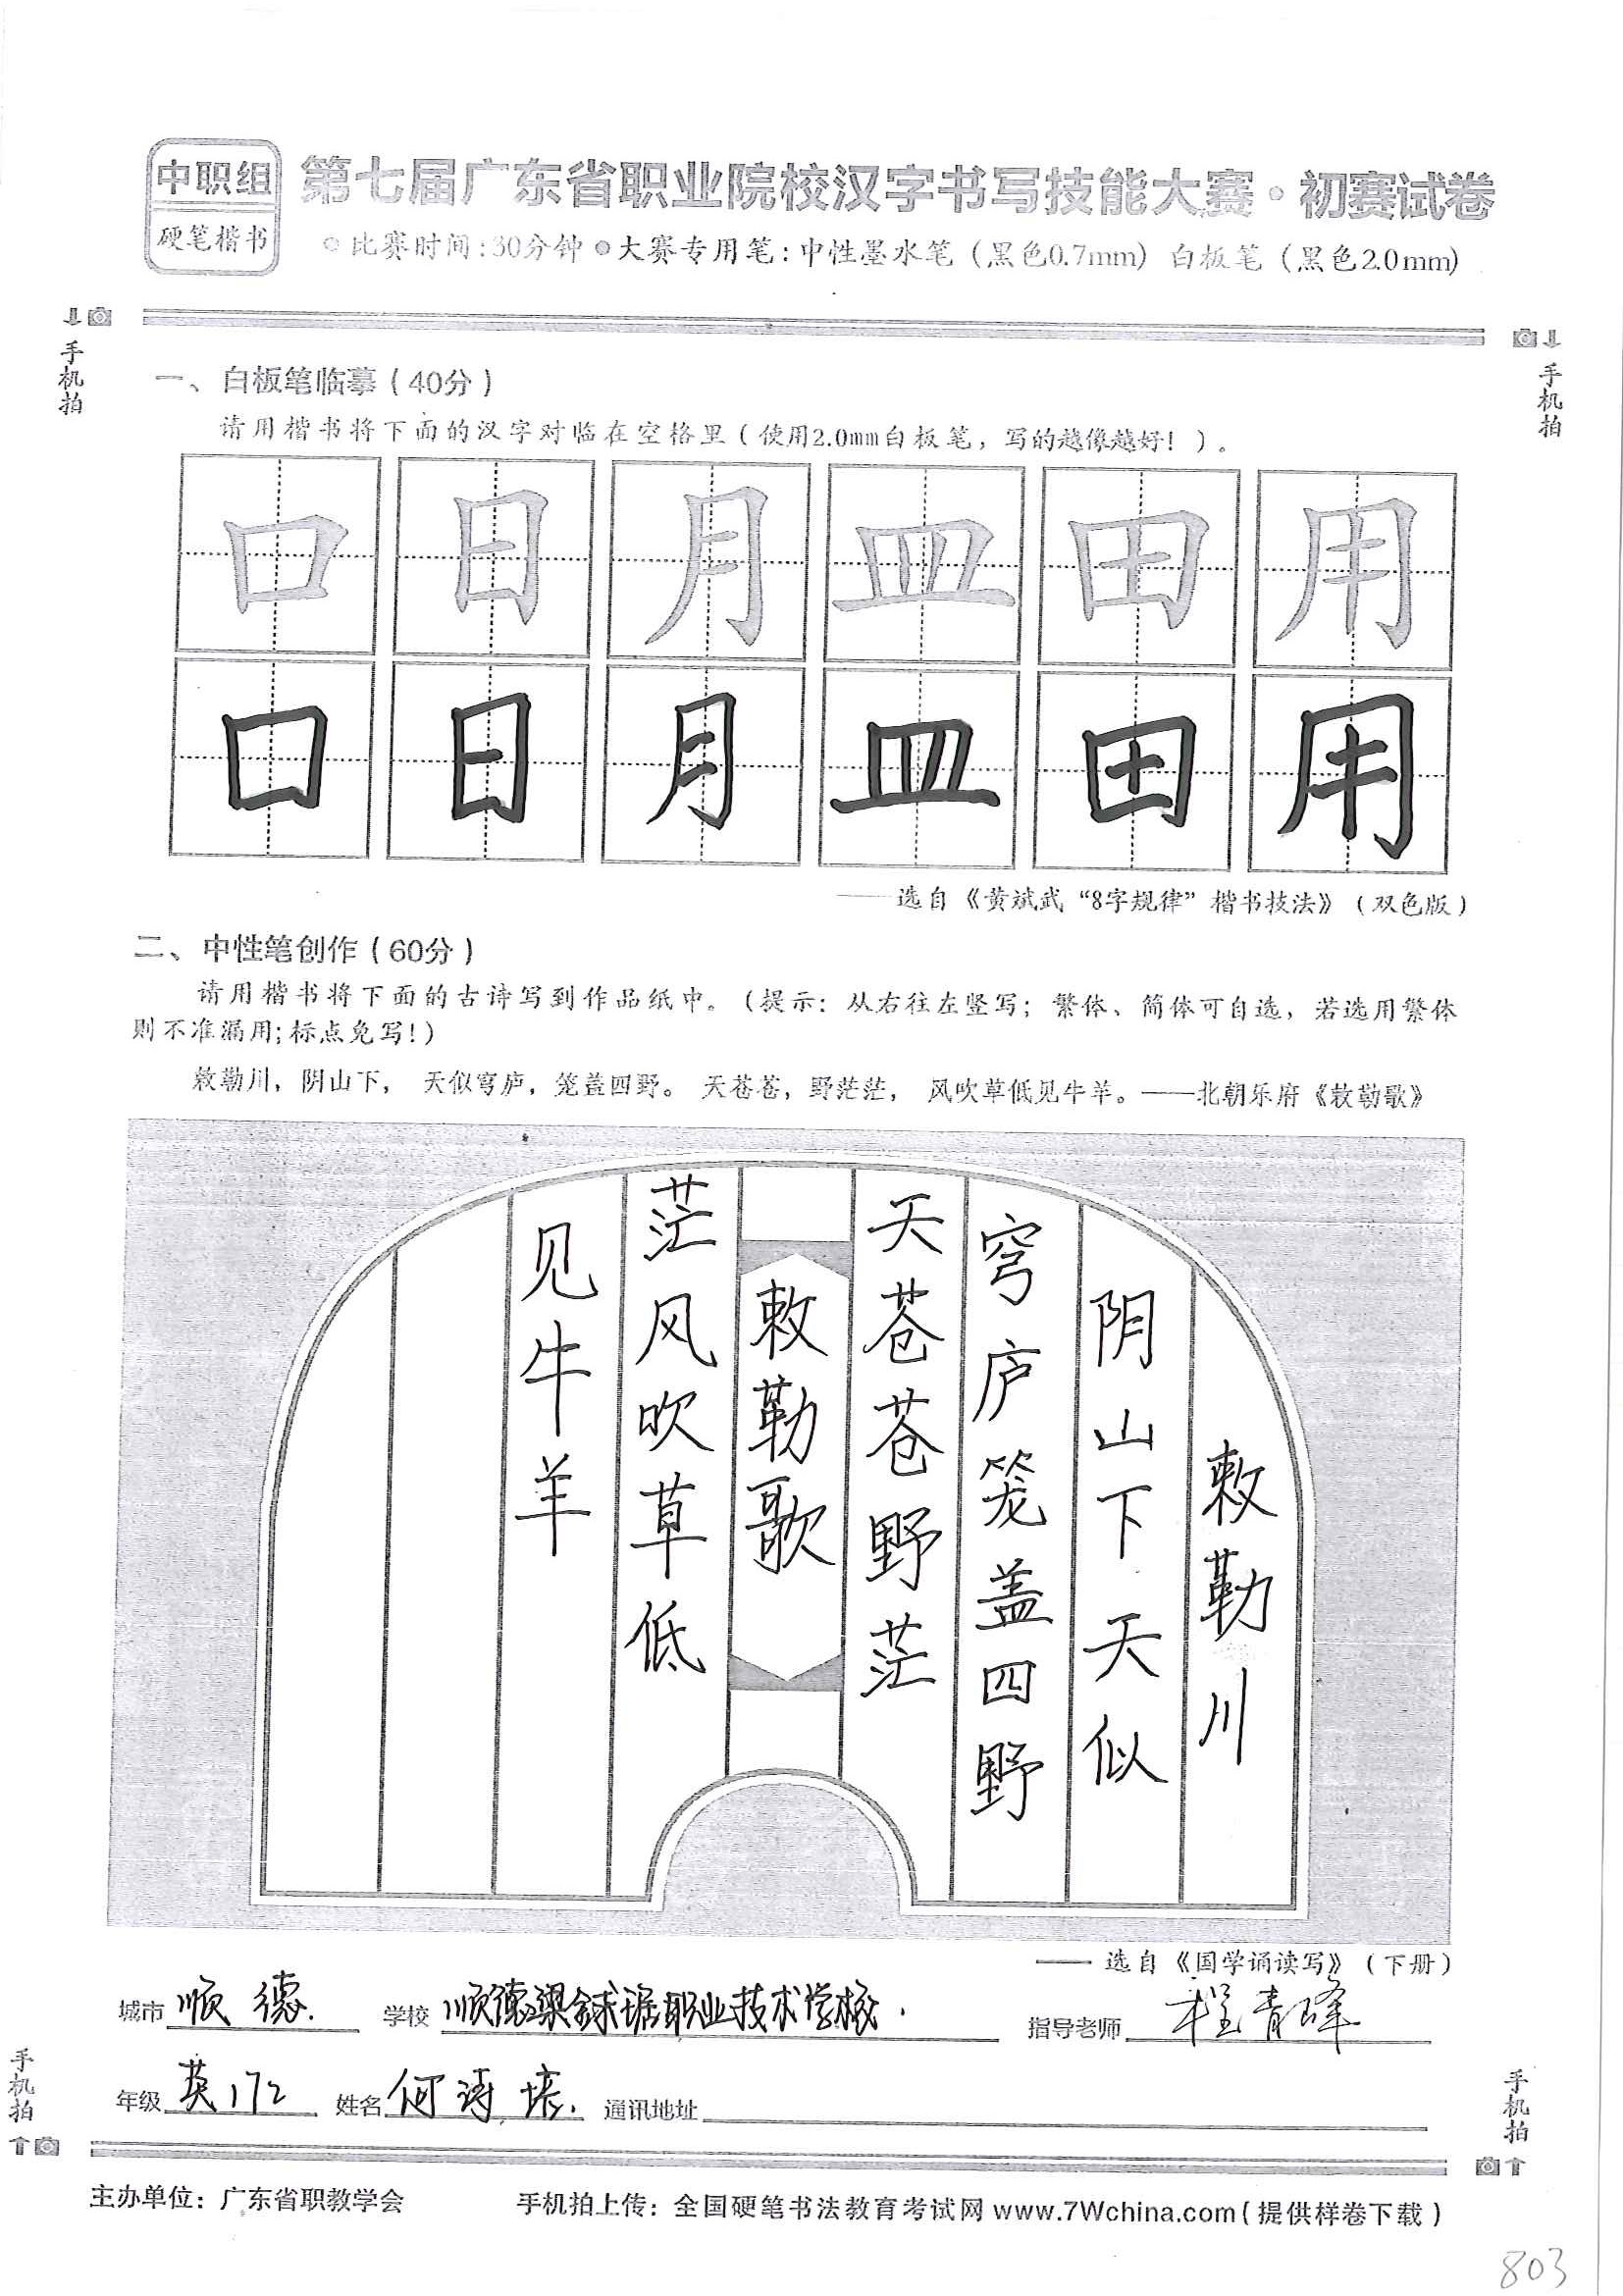 中职组
硬笔楷书
第七届广东省职业院校汉字书写技能大赛·初赛试卷
比赛时间:30分钟 ●大赛专用笔:中性墨水笔（黑色0.7mm）白板笔（黑色2.0mm）
手机拍
手机拍
一、白板笔临摹（40分）
请用楷书将下面的汉字对临在空格里（使用2.0mm白板笔，写的越像越好！）。
口 日 月 皿 田 用
口 日 月 皿 田 用
——选自《黄斌武“8字规律”楷书技法》（双色版）
二、中性笔创作（60分）
请用楷书将下面的古诗写到作品纸中。（提示：从右往左竖写；繁体、简体可自选，若选用繁体
则不准漏用;标点免写！）
敕勒川，阴山下，天似穹庐，笼盖四野。天苍苍，野茫茫，风吹草低见牛羊。——北朝乐府《敕勒歌》
敕勒川
阴山下天似
穹庐笼盖四野
天苍苍野茫
敕勒歌
茫风吹草低
见牛羊
—— 选自《国学诵读写》（下册）
城市 顺德. 学校 顺德梁銶琚职业技术学校. 指导老师 程青峰
年级 英172 姓名 何诗培. 通讯地址
手机拍
手机拍
主办单位：广东省职教学会 手机拍上传：全国硬笔书法教育考试网 www.7Wchina.com（提供样卷下载）
803